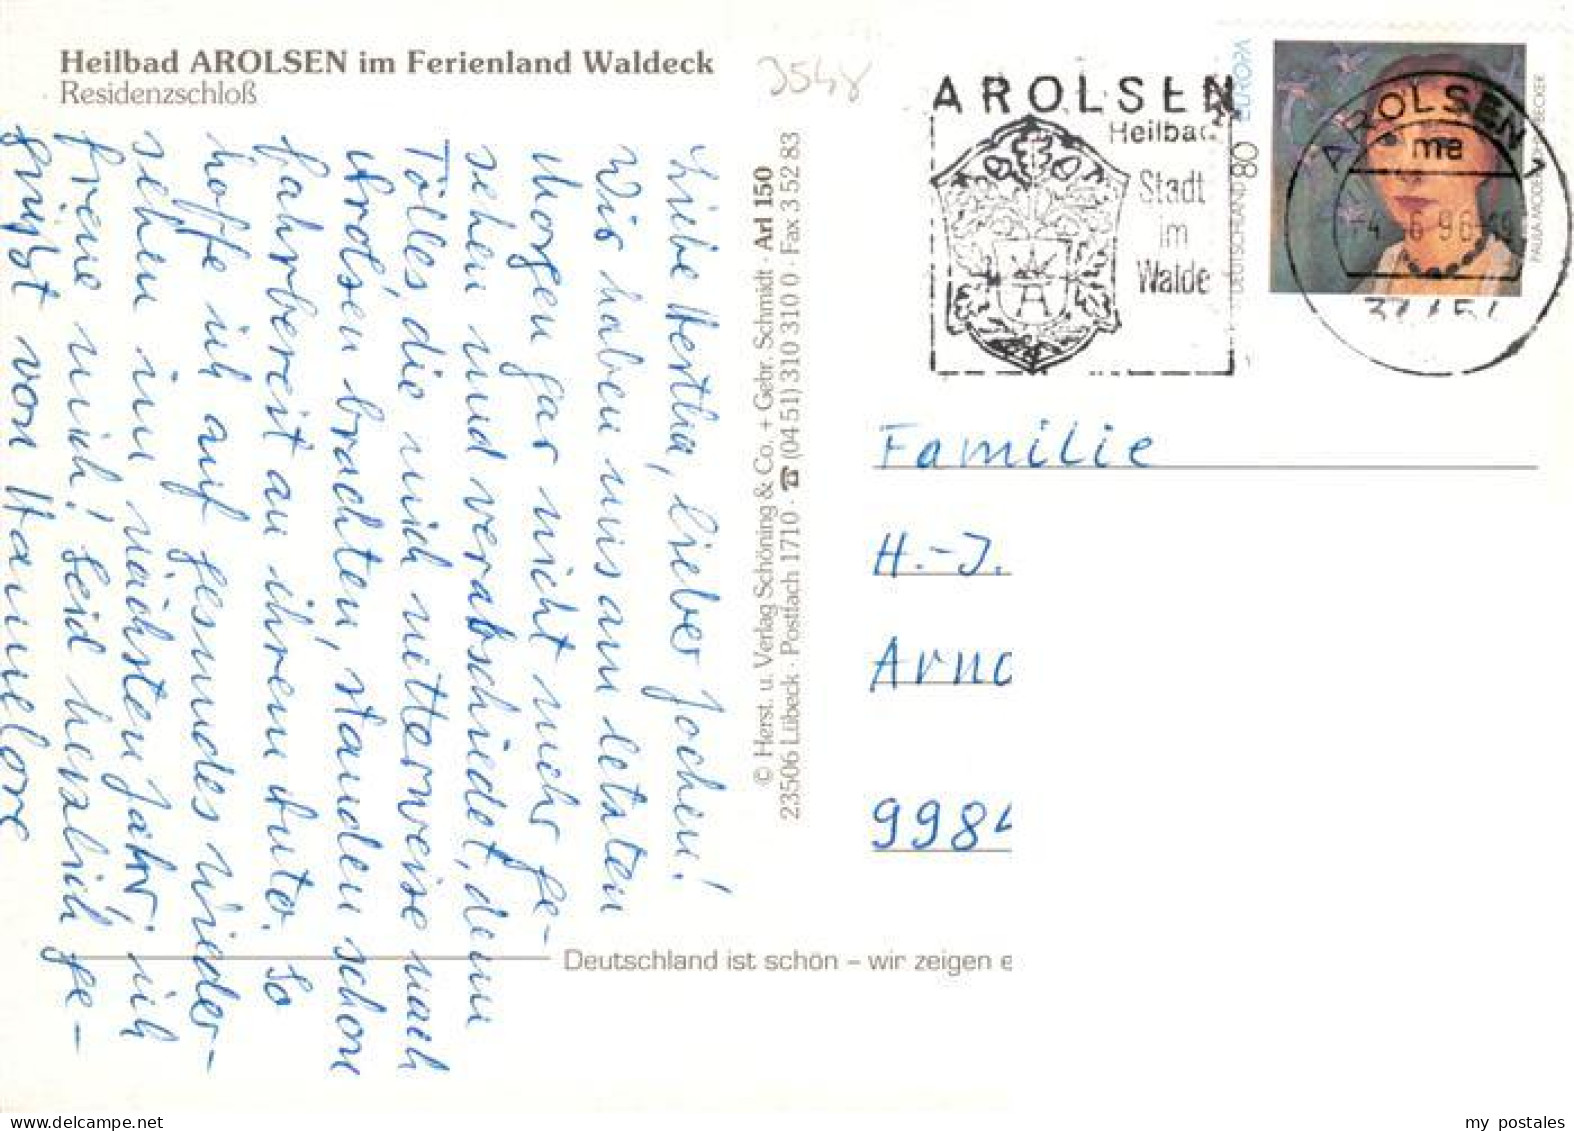 Heilbad AROLSEN im Ferienland Waldeck
Residenzschloß
3548
Liebe Hertha, lieber Jochen!
Wir haben uns am letzten
Morgen gar nicht mehr ge-
sehen und verabschiedet, denn
Tölles, die mich mitterweise nach
Arolsen brachten, standen schon
fahrbereit an ihrem Auto. So
hoffe ich auf gesundes Wieder-
sehen im nächsten Jahr, ich
freue mich! Seid herzlich ge-
grüßt von Hannelore
© Herst. u. Verlag Schöning & Co. + Gebr. Schmidt · Arl 150
23506 Lübeck · Postfach 1710 · ☎ (04 51) 310 310 0 · Fax 3 52 83
AROLSEN
Heilbad
Stadt
im
Walde
A
EUROPA
80
DEUTSCHLAND
PAULA MODERSOHN-BECKER
AROLSEN 1
ma
-4.-6.96-19
Familie
H.-J.
Arno
9984
Deutschland ist schön – wir zeigen e
my postales